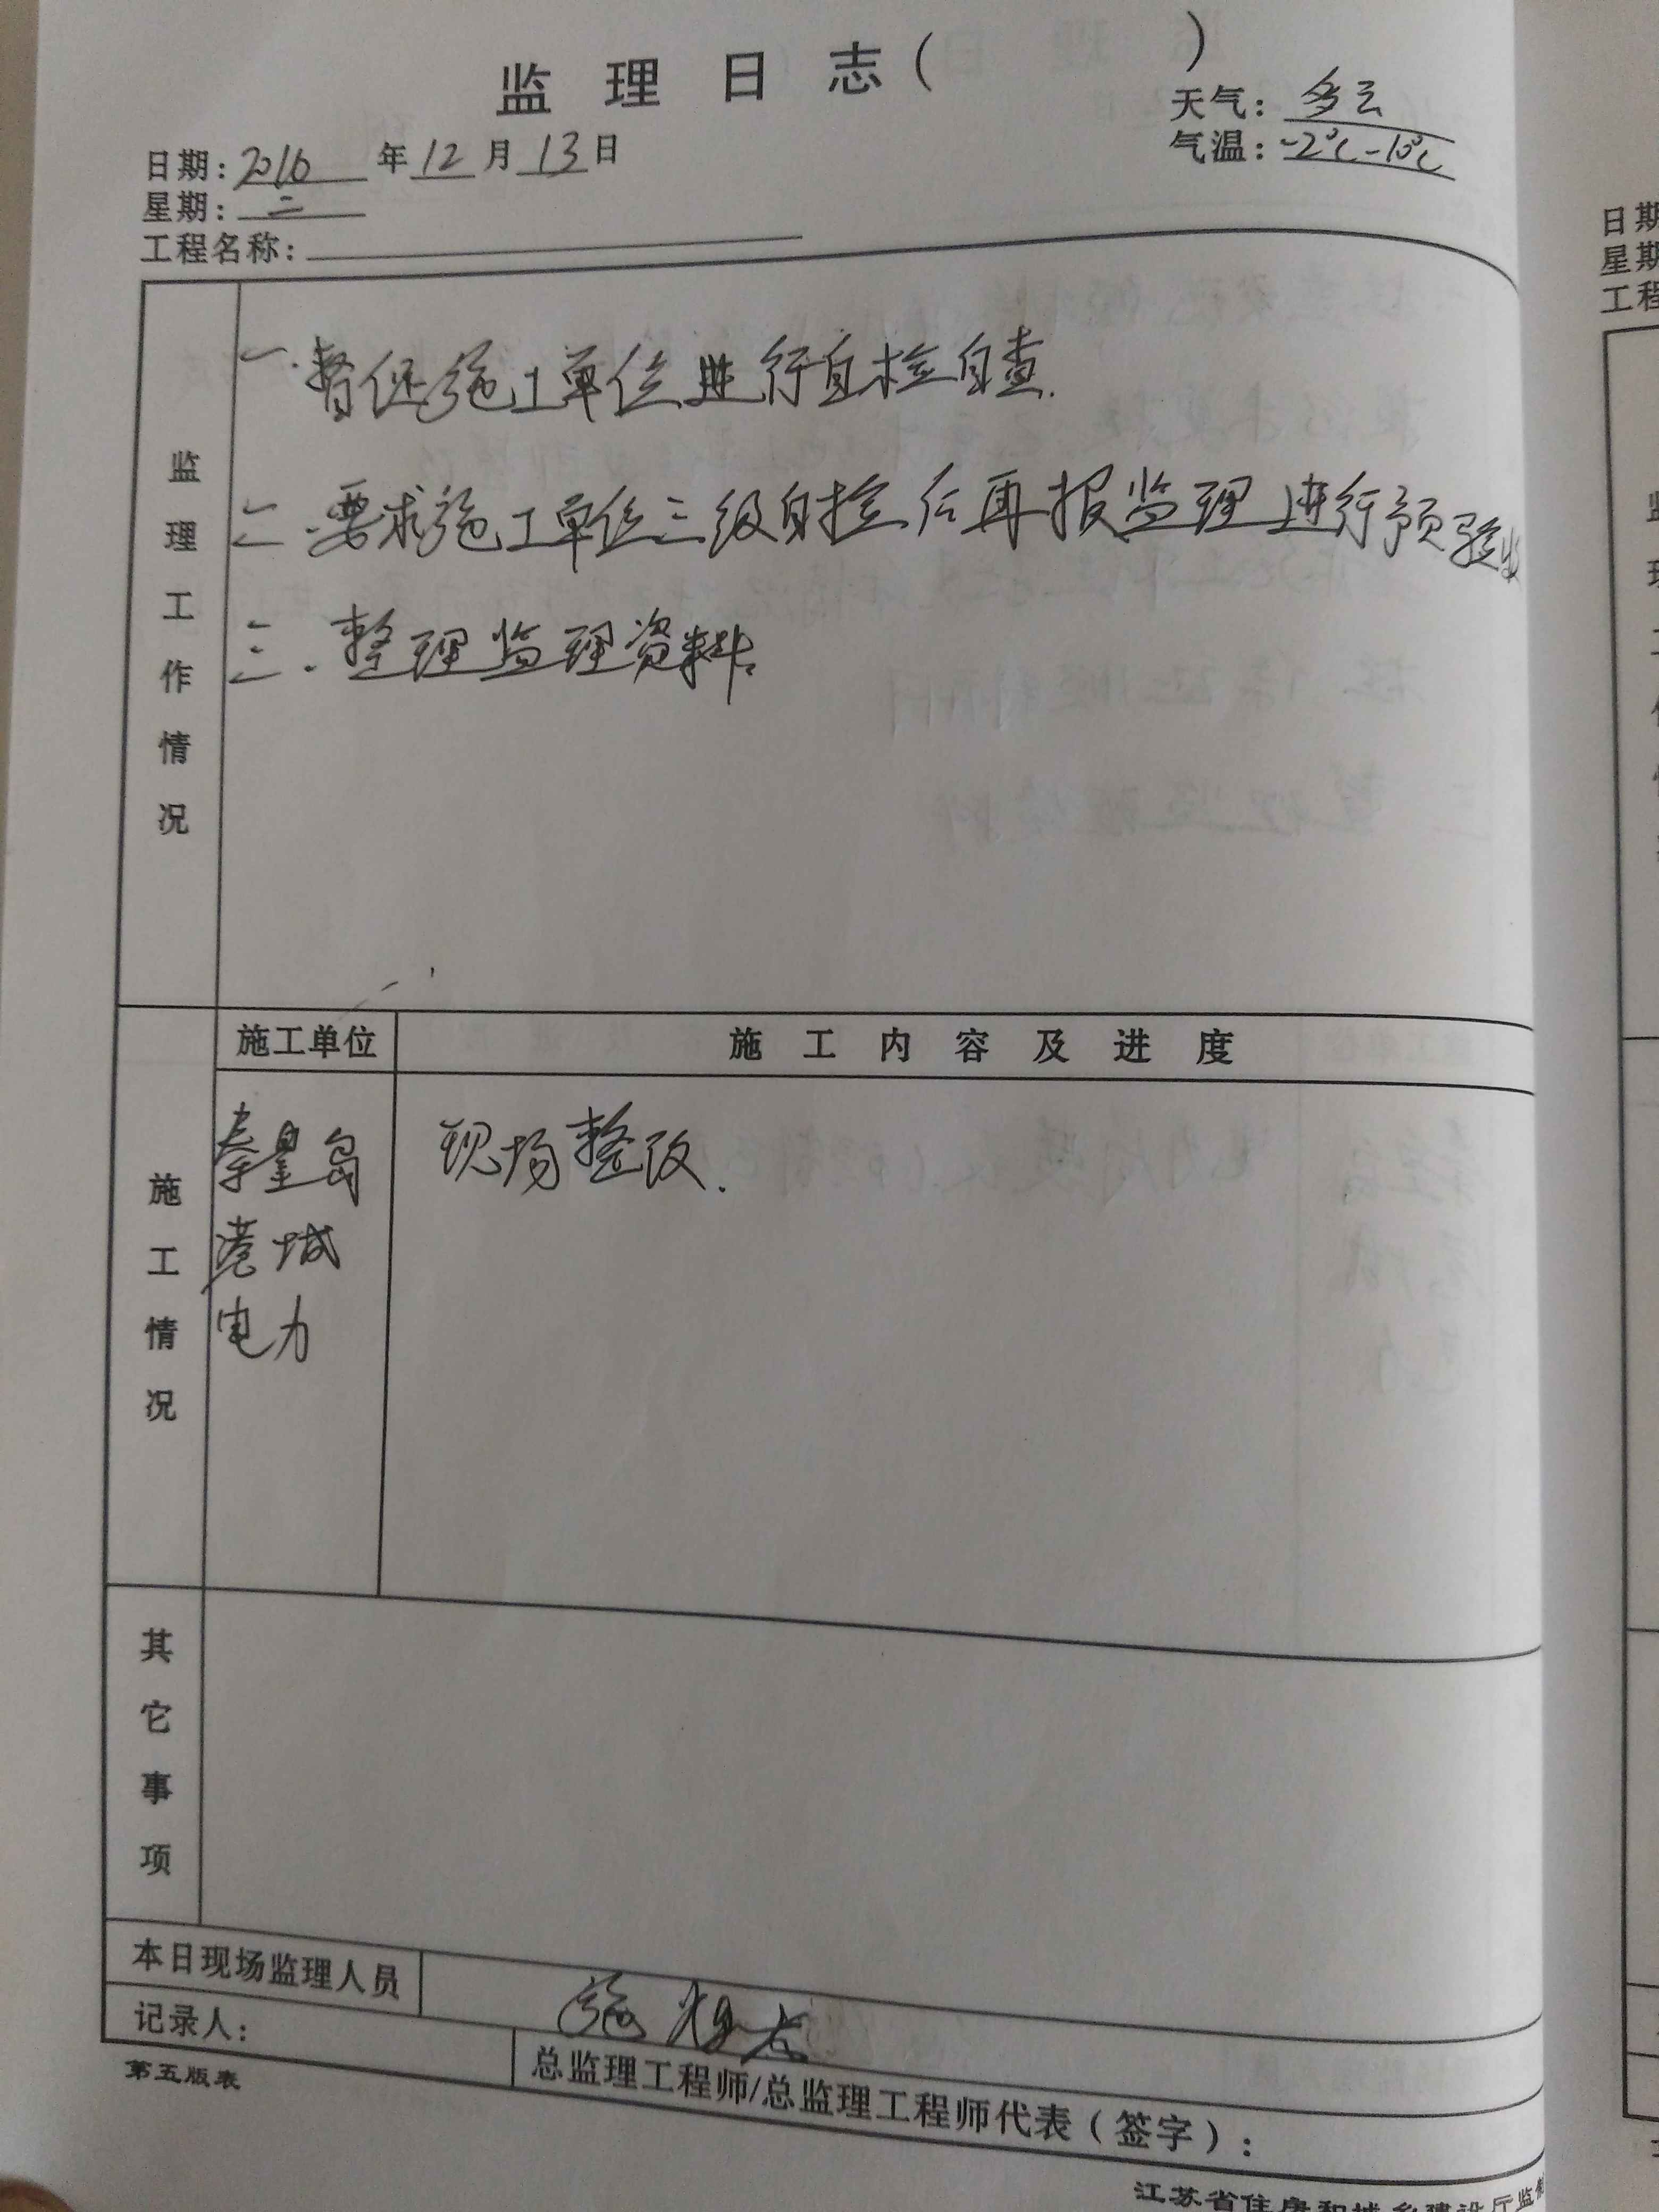 监理日志（ ）
天气：多云
日期：2016年12月13日
气温：-2℃-10℃
星期：二
工程名称：
监理工作情况
一.督促施工单位进行自检自查.
二.要求施工单位三级自检后再报监理进行预验收
三.整理监理资料
施工情况
施工单位 施工内容及进度
秦皇岛 现场整改.
港城
电力
其它事项
本日现场监理人员 施
记录人：
总监理工程师/总监理工程师代表（签字）：
第五版表
江苏省住房和城乡建设厅监制
日期
星期
工程